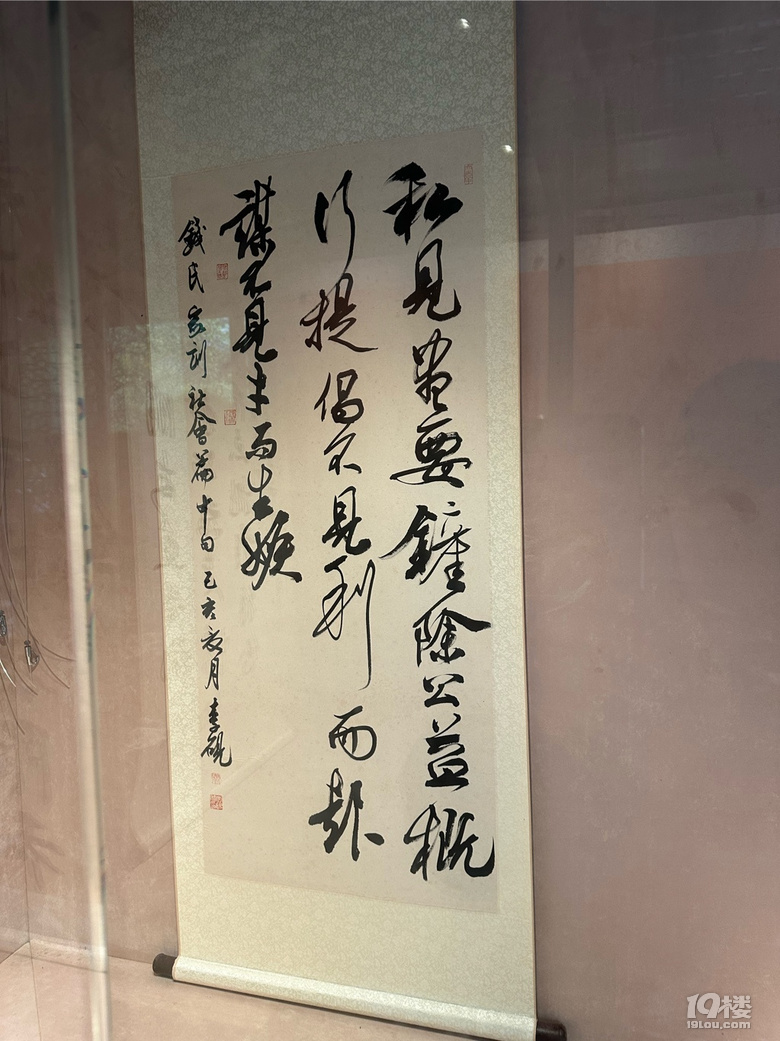 私見盡要鏟除公益概
行提倡不見利而起
謀不見才而生嫉
錢氏家訓社會篇中句 己亥 月
19楼
19lou.com